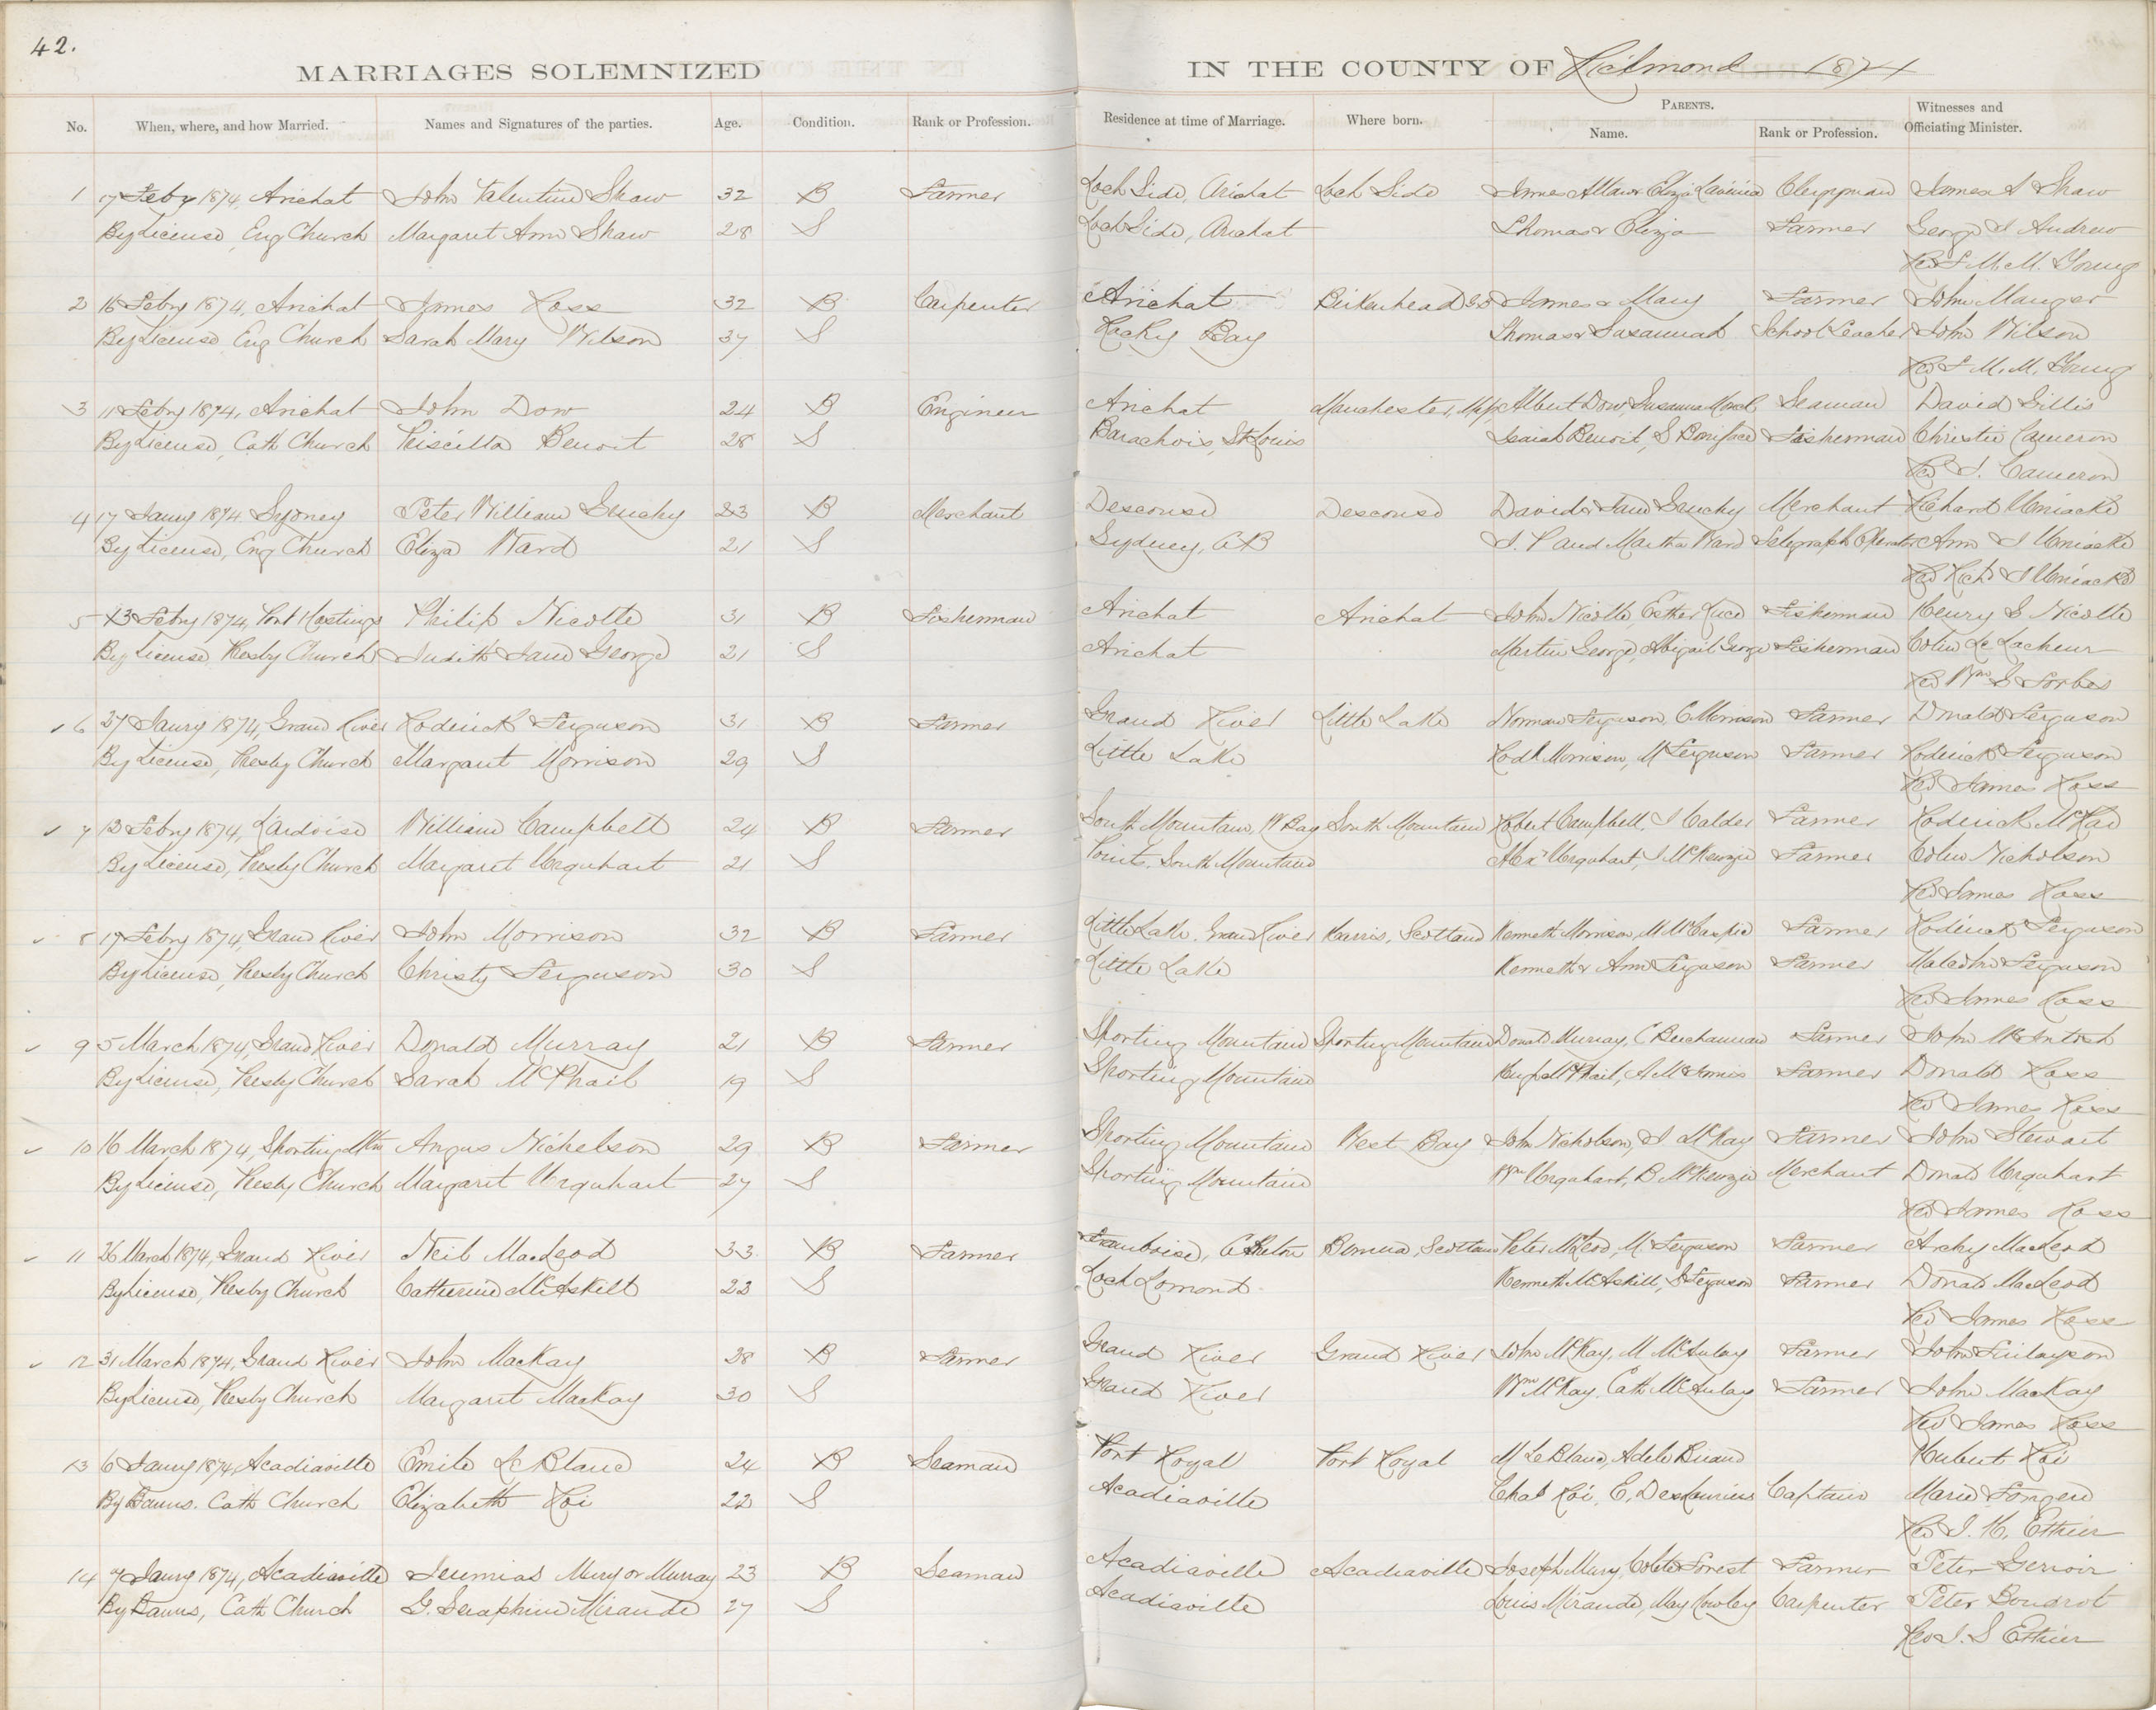 42.
MARRIAGES SOLEMNIZED IN THE COUNTY OF Richmond — 1874
No. When, where, and how Married. Names and Signatures of the parties. Age. Condition. Rank or Profession. Residence at time of Marriage. Where born. PARENTS. Name. Rank or Profession. Witnesses and Officiating Minister.
1 17 Feby 1874, Arichat John Valentine Shaw 32 B Farmer Loch Side, Arichat Loch Side James Allan & Eliza Lavinia Clergyman James S Shaw
By License, Eng Church Margaret Ann Shaw 28 S Loch Side, Arichat Thomas & Eliza Farmer George I Andrew
Rev M. M. Young
2 16 Febry 1874, Arichat James Ross 32 B Carpenter Arichat Birkenhead James & Mary Farmer John Mauger
By License Eng Church Sarah Mary Wilson 37 S Rocky Bay Thomas & Susannah School Teacher John Wilson
Rev M. M. Young
3 11 Febry 1874, Arichat John Dow 24 B Engineer Arichat Manchester, Albert Dow, Susanna Seaman David Gillis
By License, Cath Church Priscilla Benoit 28 S Barachois, St Louis Isaiah Benoit, S Boniface Fisherman Christie Cameron
Rev J. Cameron
4 17 Janry 1874 Sydney Peter William Gruchy 23 B Merchant Descouse Descouse David & Jane Gruchy Merchant Richard Uniacke
By License, Eng Church Eliza Ward 21 S Sydney, CB J. P and Martha Ward Telegraph Operator Ann J Uniacke
Rev Richd J Uniacke
5 13 Febry 1874, Port Hastings Philip Nicolle 31 B Fisherman Arichat Arichat John Nicolle, Esther Luce Fisherman Henry G Nicolle
By License, Presby Church Judith Jane George 21 S Arichat Martin George, Abigail George Fisherman Colin Le Lacheur
Rev Wm G Forbes
6 27 Janry 1874, Grand River Roderick Ferguson 31 B Farmer Grand River Little Lake Norman Ferguson, C Morrison Farmer Donald Ferguson
By License, Presby Church Margaret Morrison 29 S Little Lake Rodk Morrison, M Ferguson Farmer Roderick Ferguson
Rev James Ross
7 12 Febry 1874, L'ardoise William Campbell 24 B Farmer South Mountain, W Bay South Mountain Robert Campbell, J Calder Farmer Roderick McRae
By License, Presby Church Margaret Urquhart 21 S Points, South Mountain Alexr Urquhart, J McKenzie Farmer Colin Nicholson
Rev James Ross
8 17 Febry 1874, Grand River John Morrison 32 B Farmer Little Lake, Grand River Harris, Scotland Kenneth Morrison, M McCaskie Farmer Roderick Ferguson
By License, Presby Church Christy Ferguson 30 S Little Lake Kenneth & Ann Ferguson Farmer Malcolm Ferguson
Rev James Ross
9 5 March 1874, Grand River Donald Murray 21 B Farmer Sporting Mountain Sporting Mountain Donald Murray, C Buchannan Farmer John McIntosh
By License, Presby Church Sarah McPhail 19 S Sporting Mountain McPhail, A McInnis Farmer Donald Ross
Rev James Ross
10 16 March 1874, Sporting Mtn Angus Nicholson 29 B Farmer Sporting Mountain West Bay John Nicholson, J McKay Farmer John Stewart
By License, Presby Church Margaret Urquhart 27 S Sporting Mountain Wm Urquhart, B McKenzie Merchant Donald Urquhart
Rev James Ross
11 26 March 1874, Grand River Neil MacLeod 33 B Farmer Framboise, C Breton Bernera, Scotland Peter McLeod, M. Ferguson Farmer Archy MacLeod
By License, Presby Church Catherine McAskill 23 S Loch Lomond Kenneth McAskill, Ferguson Farmer Donald MacLeod
Rev James Ross
12 31 March 1874, Grand River John MacKay 28 B Farmer Grand River Grand River John McKay, M McAulay Farmer John Finlayson
By License, Presby Church Margaret MacKay 30 S Grand River Wm McKay, Cath McAulay Farmer John MacKay
Rev James Ross
13 6 Janry 1874, Acadiaville Emile Le Blanc 24 B Seaman Port Royal Port Royal M Le Blanc, Adele Hubert Roi
By Banns. Cath Church Elizabeth Roi 22 S Acadiaville Chas Roi, E. Deslauriers Captain Marie Forgere
Rev J. H. Ethier
14 7 Janry 1874, Acadiaville Jeremias Mury or Murray 23 B Seaman Acadiaville Acadiaville Joseph Mury, Colete Forest Farmer Peter Gerroir
By Banns, Cath Church G. Seraphine Mirande 27 S Acadiaville Louis Mirande, May Carpenter Peter Boudrot
Rev J. S Ethier